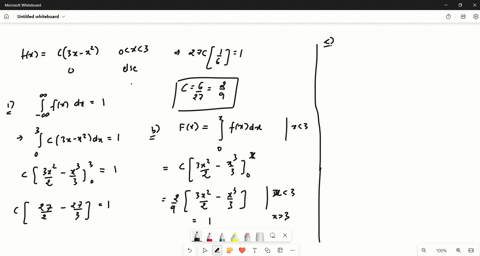 Microsoft Whiteboard
Untitled whiteboard
f(x) = c(3x-x²) 0<x<3
0 else
1) ∫_{-∞}^{∞} f(x) dx = 1
→ ∫_{0}^{3} c(3x-x²)dx = 1
c[3x²/2 - x³/3]_{0}^{3} = 1
c[27/2 - 27/3] = 1
⇒ 27c[1/6] = 1
c = 6/27 = 2/9
b) F(x) = ∫_{0}^{x} f(x)dx | x<3
= c[3x²/2 - x³/3]_{0}^{x}
= 2/9 [3x²/2 - x³/3] | x<3
= 1 x>3
c)
100%